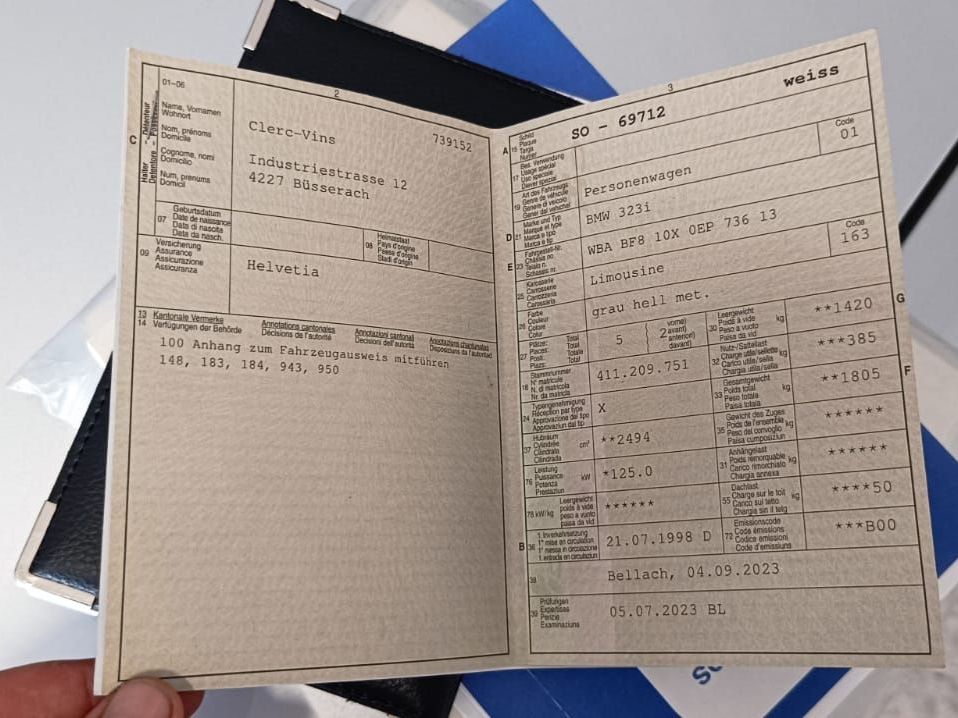 2
01-06
C
Halter
Détenteur
Name, Vornamen
Wohnort
Nom, prénoms
Domicile
Cognome, nomi
Domicilio
Num, prenums
Domicil
Clerc-Vins
739152
Industriestrasse 12
4227 Büsserach
07
Geburtsdatum
Date de naissance
Data di nascita
Data da nasch.
08
Heimatstaat
Pays d'origine
Paese d'origine
Stadi d'origin
09
Versicherung
Assurance
Assicurazione
Assicuranza
Helvetia
13 Kantonale Vermerke
14 Verfügungen der Behörde
Annotations cantonales
Décisions de l'autorité
Annotazioni cantonali
Decisioni dell'autorità
Annotaziuns chantunalas
Disposiziuns da l'autoritad
100 Anhang zum Fahrzeugausweis mitführen
148, 183, 184, 943, 950
3
A
15
Schild
Plaque
Targa
Numer
SO - 69712
weiss
17
Bes. Verwendung
Usage spécial
Uso speciale
Diever spezial
Code
01
19
Art des Fahrzeugs
Genre de véhicule
Genere di veicolo
Gener dal vehichel
Personenwagen
D
21
Marke und Typ
Marque et type
Marca e tipo
Marca e tip
BMW 323i
E
23
Fahrgestell-Nr.
Châssis no
Telaio n.
Schassis nr.
WBA BF8 10X 0EP 736 13
25
Karosserie
Carrosserie
Carrozzeria
Carossaria
Limousine
Code
163
26
Farbe
Couleur
Colore
Colur
grau hell met.
27
Plätze: Total
Places: Total
Posti: Totale
Plazs: Total
5
2
vorne)
avant)
anteriori)
davant)
30
Leergewicht
Poids à vide
Peso a vuoto
Paisa da vid
kg
**1420
G
18
Stammnummer
N° matricule
N. di matricola
Nr. da matricla
411.209.751
32
Nutz-/Sattellast
Charge utile/sellette
Carico utile/sella
Chargia utila/sella
kg
***385
24
Typengenehmigung
Réception par type
Approvazione del tipo
Approvaziun dal tip
X
33
Gesamtgewicht
Poids total
Peso totale
Paisa totala
kg
**1805
F
37
Hubraum
Cylindrée
Cilindrata
Cilindrada
cm³
**2494
35
Gewicht des Zuges
Poids de l'ensemble
Peso del convoglio
Paisa cumposiziun
kg
******
76
Leistung
Puissance
Potenza
Prestaziun
kW
*125.0
31
Anhängelast
Poids remorquable
Carico rimorchiato
Chargia annexa
kg
******
78 kW/kg
Leergewicht
poids à vide
peso a vuoto
paisa da vid
******
55
Dachlast
Charge sur le toit
Carico sul tetto
Chargia sin il tetg
kg
****50
B
36
1. Inverkehrsetzung
1re mise en circulation
1a messa in circolazione
1. entrada en circulaziun
21.07.1998 D
72
Emissionscode
Code émissions
Codice emissioni
Code d'emissiuns
***B00
38
Bellach, 04.09.2023
39
Prüfungen
Expertises
Perizie
Examinaziuns
05.07.2023 BL